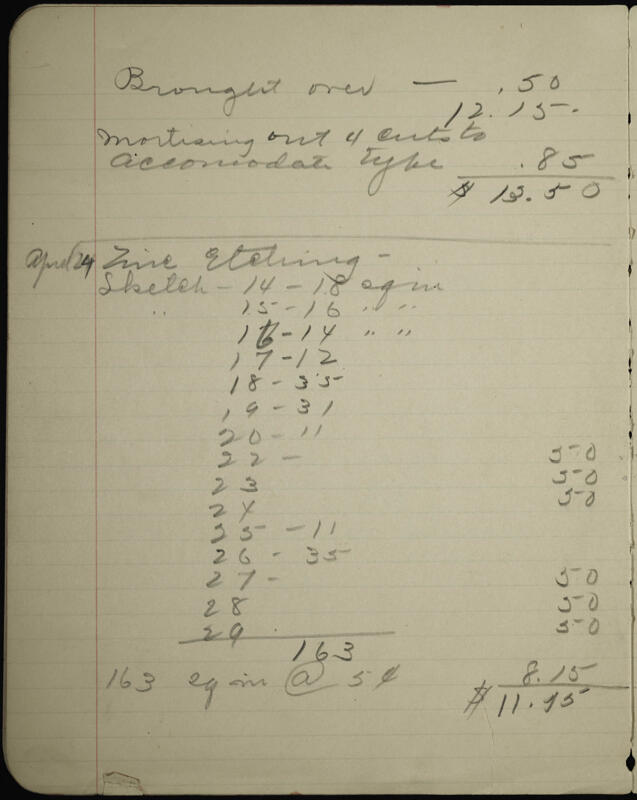 Brought over — .50
12.15.
Mortising out 4 cuts to
accomodate type .85
$ 13.50
April 24 Zinc Etching -
Sketch - 14 - 18 sq in
" 15 - 16 " "
16 - 14 " "
17 - 12
18 - 35
19 - 31
20 - 11
22 - 50
23 50
24 50
25 - 11
26 - 35
27 - 50
28 50
29 50
163
163 sq in @ 5¢ 8.15
$ 11.15